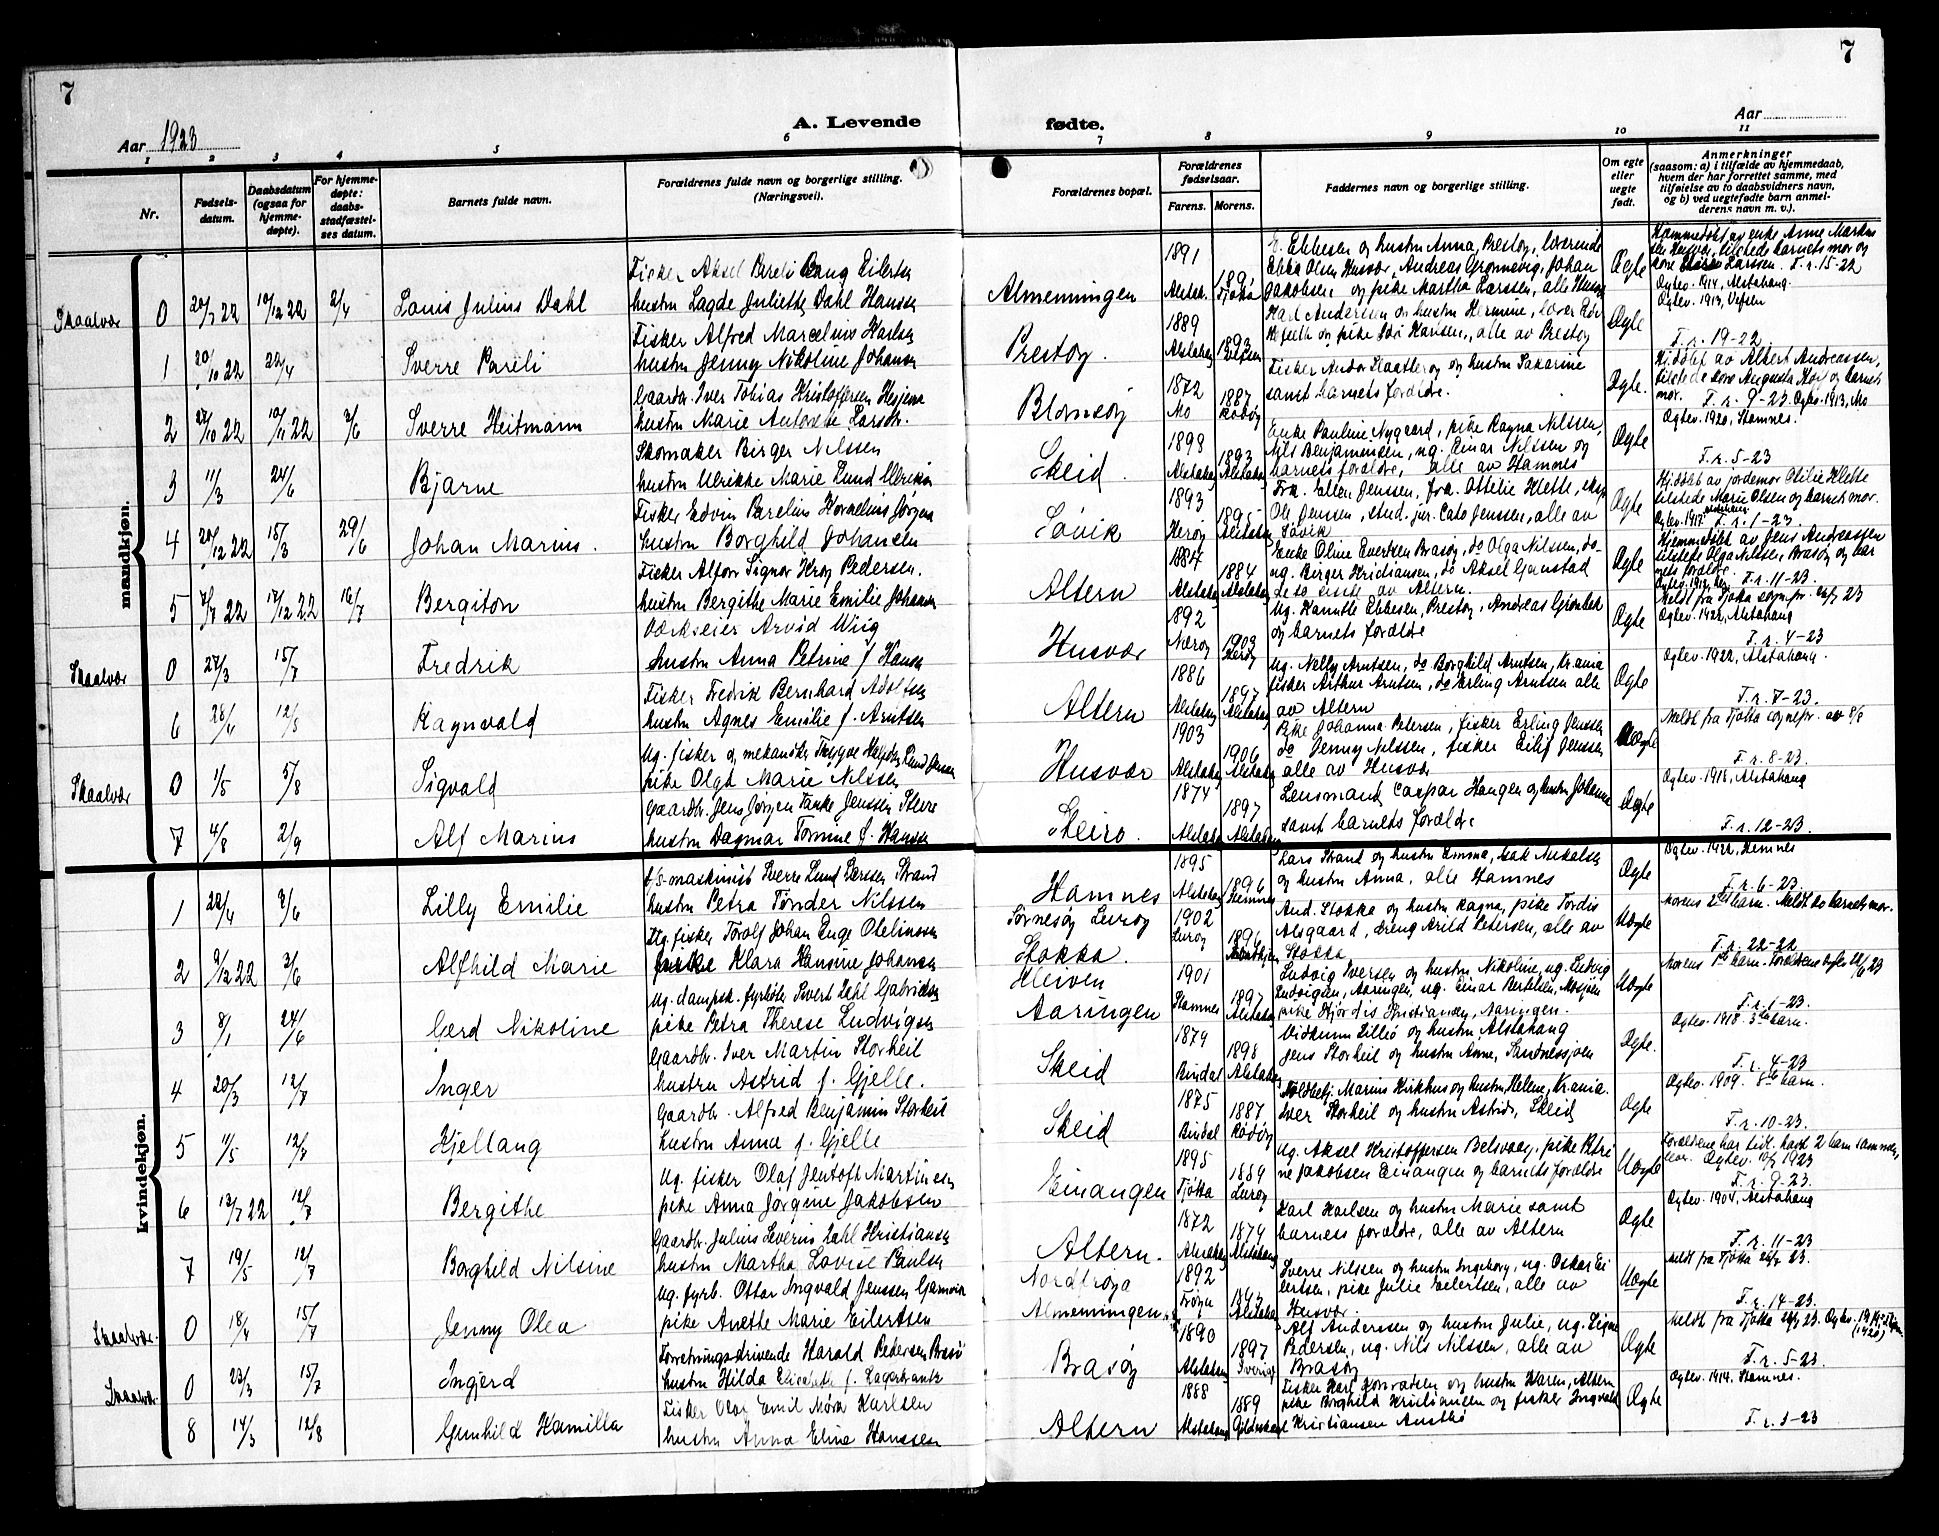 7
7
Aar 1923
A. Levende fødte.
Aar
1 2 3 4 5 6 7 8 9 10 11
Nr.
Fødsels-
datum.
Daabsdatum
(ogsaa for
hjemme-
døpte).
For hjemme-
døpte:
daabs-
stadfæstel-
ses datum.
Barnets fulde navn.
Forældrenes fulde navn og borgerlige stilling.
(Næringsvei).
Forældrenes bopæl.
Forældrenes
fødselsaar.
Farens. Morens.
Faddernes navn og borgerlige stilling.
Om egte
eller
uegte
født.
Anmerkninger
(saasom: a) i tilfælde av hjemmedaab,
hvem der har forrettet samme, med
tilføielse av to daabsvidners navn,
og b) ved uegtefødte barn anmel-
derens navn m. v.).
mandkjøn.
Skaalvær 0 20/7 22 10/12 22 2/4 Louis Julius Dahl
Fisker Aksel Pareli Bang Eilertsen
hustru Lagde Juliette Dahl Hansen
Almenningen
1891
Alstah. Tjøtta
E. Ebbesen og hustru Anna, Prestøy, lærerinde
Ebba Olsen Husvær, Andreas Grønnevig, Johan
Jakobsen og pike Martha Larssen, alle Husvær
Ægte
Hjemmedøbt av enke Anne Markus
sen Husvær, tilstede barnets mor og
Larssen. F. r. 15-22
Ægtev. 1914, Alstahaug.
1 20/10 22 22/4 Sverre Pareli
Fisker Alfred Marcelius Karlsen
hustru Jenny Nikoline Johansen
Prestøy.
1889 1893
Alstahaug
Karl Andersen og hustru Hermine,
og pike Hansen, alle av Prestøy
Ægte
Ægtev. 1913, Vefsn
F. r. 19-22
2 27/10 22 10/11 22 3/6 Sverre Heitmann
Gaardbr. Iver Tobias Kristoffersen Hesjem
hustru Marie Antonette Larsdtr.
Blomsøy
1872 1887
Mo Rødøy
Fisker Andor Kaatterøy og hustru Sakarine
samt barnets forældre.
Ægte.
Hj.døbt av Albert Andreassen,
tilstede Augusta og barnets
mor. F. r. 9-23. Ægtev. 1913, Mo
3 11/3 24/6 Bjarne
Skomaker Birger Nilssen
hustru Ulrikke Marie Lund Ulriksen
Skeid.
1898 1893
Alstahaug Alstahaug
Enke Pauline Nygaard, pike Ragna Nilssen,
Nils Benjaminsen, ug. Einar Nilssen og
barnets forældre, alle av Hamnes
Ægte
Ægtev. 1920, Stamnes.
F. r. 5-23
4 20/12 22 18/3 29/6 Johan Marius.
Fisker Edvin Parelius Kornelius Jørgen
hustru Borghild Johansen
Søvik
1893 1895
Herøy Alstahaug
Fra. Ellen Jenssen, fra. Ottelie Klette, eksp.
Ole Jenssen, stud. jur. Cato Jenssen, alle av
Søvik
Ægte
Hj.døbt av jordemor Otilie Klette
tilstede Marie Olsen og barnets mor.
Ægtev. 1917 F. r. 1-23.
5 7/7 22 17/12 22 16/7 Bergiton
Fisker Alfon Signor Krog Pedersen.
hustru Bergithe Marie Emilie Johansen
Altern
1884 1884
Alstahaug Alstahaug
Enke Oline Evertsen Brasøy, do Olga Nilssen, do-
ug. Birger Kristiansen, do Aksel Grønstad
de to sidste av Altern.
Ægte
Hjemmedøbt av Jens Andreassen
tilstede Olga Nilssen, Brasøy og bar
nets forældre.
F. r. 11-23.
Skaalvær 0 27/3 15/7 Fredrik
Værkseier Arvid Wiig
hustru Anna Petrine f. Hansen
Husvær
1892 1903
Nærøy Herøy
Ug. Hanette Ebbesen, Prestøy, Andreas Grønbek
og barnets forældre
Ægte
Meldt fra Tjøtta sogn.pr. 26/7 23
Ægtev. 1922, Alstahaug
F. r. 4-23
6 28/4 12/5 Ragnvald
Fisker Fredrik Bernhard Adolfsen
hustru Agnes Emilie f. Arntsen
Altern
1886 1897
Alstahaug Alstahaug
Ug. Nelly Arntsen, do Borghild Arntsen, Krania
fisker Arthur Arntsen, do Erling Arntsen alle
av Altern
Ægte
Ægtev. 1922, Alstahaug.
F. r. 7-23.
Skaalvær 0 1/5 5/8 Sigvald
Ug. fisker og mekaniker Trygve Heyder Lund Jensen
pike Olga Marie Nilssen
Husvær
1903 1906
Alstahaug Alstahaug
Pike Johanna Petersen, fisker Erling Jenssen
do Jenny Nilssen, fisker Eilif Jenssen
alle av Husvær
Uægte
Meldt fra Tjøtta sognepr. av 8/8
F. r. 8-23.
7 4/8 2/9 Alf Marius
Gaardbr. Jens Jørgen Tanke Jenssen Sture
hustru Dagmar Tomine f. Hansen
Skeiro.
1874 1897
Alstahaug Alstahaug
Lensmand Caspar Haugen og hustru Johanne
samt barnets forældre
Ægte
Ægtev. 1918, Alstahaug
F. r. 12-23.
kvindekjøn.
1 22/4 3/6 Lilly Emilie
D/S-maskinist Sverre Lund Larssen Strand
hustru Petra Tønder Nilssen
Hamnes
1895 1896
Alstahaug Hemnes
Lars Strand og hustru Emma, Isak Mikalsen
og hustru Anna, alle Hamnes
Ægte
Ægtev. 1922, Hemnes
F. r. 6-23.
2 9/12 22 3/6 Alfhild Marie
Ug. fisker Torolf Johan Enge Olelinssen
pike Klara Hansine Johansen
Tørnesøy Lurøy
Stokka.
1902 1896
Lurøy
And. Stokka og hustru Ragna, pike Tordis
Alsgaard, dreng Arild Petersen, alle av
Stokka
Uægte
Morens 2det barn. Meldt av barnets mor.
F. r. 22-22
3 8/1 24/6 Gerd Nikoline
Ug. dampsk. fyrbøter Sivert Dahl Gabrielsen
pike Petra Therese Ludvigsen
Kleiven
Aaringen
1901 1897
Stamnes Alstahaug
Ludvig Iversen og hustru Nikoline, ug. Ludvig
Ludvigsen, Aaringen, ug. Einar Bertelsen, Mosjøen
pike Hjørdis Kristiansen, Aaringen.
Uægte
Morens 1ste barn. Forældrene ægtev. 22/6 23
F. r. 1-23.
4 20/3 12/8 Inger
Gaardbr. Iver Martin Storheil
hustru Astrid f. Gjelle.
Skeid
1879 1898
Bindal Alstahaug
Vidkunn Lillo og hustru Alstahaug
Jens Storheil og hustru Anne, Sandnessjøen
Ægte.
Ægtev. 1918. 3die barn.
F. r. 4-23.
5 11/5 12/8 Kjellaug
Gaardbr. Alfred Benjamin Storheil
hustru Anna f. Gjelle
Skeid
1875 1887
Bindal Rødøy
Toldbetj. Marius Kirkhus og hustru Helene, Krania.
Iver Storheil og hustru Astrid, Skeid
Ægte
Ægtev. 1909. 8de barn.
F. r. 10-23.
6 13/7 22 12/7 Bergithe
Ug. fisker Olaf Jentoft Martinesen
pike Anna Jørgine Jakobsen
Einangen
1895 1889
Tjøtta Lurøy
Ug. Aksel Kristoffersen Belsvaag, pike Petri
ne Jakobsen Einangen og barnets forældre
Uægte
Forældrene har tidl. havt 2 barn sammen,
Ægtev. 10/7 1923
F. r. 9-23.
7 19/5 12/7 Borghild Nilsine
Gaardbr. Julius Severin Dahl Kristiansen
hustru Martha Lovise Paulsen
Altern.
1872 1879
Alstahaug Alstahaug
Karl Karlsen og hustru Marie samt
barnets forældre, alle av Altern
Ægte
Ægtev. 1904, Alstahaug
F. r. 11-23
Skaalvær. 0 18/4 15/7 Jenny Olea
Ug. fyrb. Ottar Ingvald Jenssen Gamvik
pike Anethe Marie Eilertsen
Nordfrøya
Almenningen
1892
Frøya Alstahaug
Sverre Nilssen og hustru Ingeborg, ug. Oskar Ei
lertsen, pike Julie Eilertsen, alle av
Husvær.
Uægte
Meldt fra Tjøtta 26/7 23.
F. r. 14-23.
Skaalvær. 0 23/3 15/7 Ingjerd
Forretningsdrivende Harald Pedersen Brasø
hustru Hilda Elisabeth f. Lagerkrantz
Brasøy
1890 1897
Alstahaug Sverige
Alf Anderssen og hustru Julie, ug. Signe
Pedersen, ug. Nils Nilssen, alle av
Brasøy
Ægte
Meldt fra Tjøtta 26/7 23. Ægtev.
(1920)
F. r. 5-23.
8 14/3 12/8 Gunhild Kamilla
Fisker Olai Emil Mørk Karlsen
hustru Anna Eline Hanssen
Altern
1888 1889
Alstahaug Gildeskaal
Fisker Karl Konradsen og hustru Karen, Altern
pike Borghild Kristiansen og fisker Ingvald
Kristiansen Austbø
Ægte
Ægtev. 1914. Stamnes.
F. r. 3-23